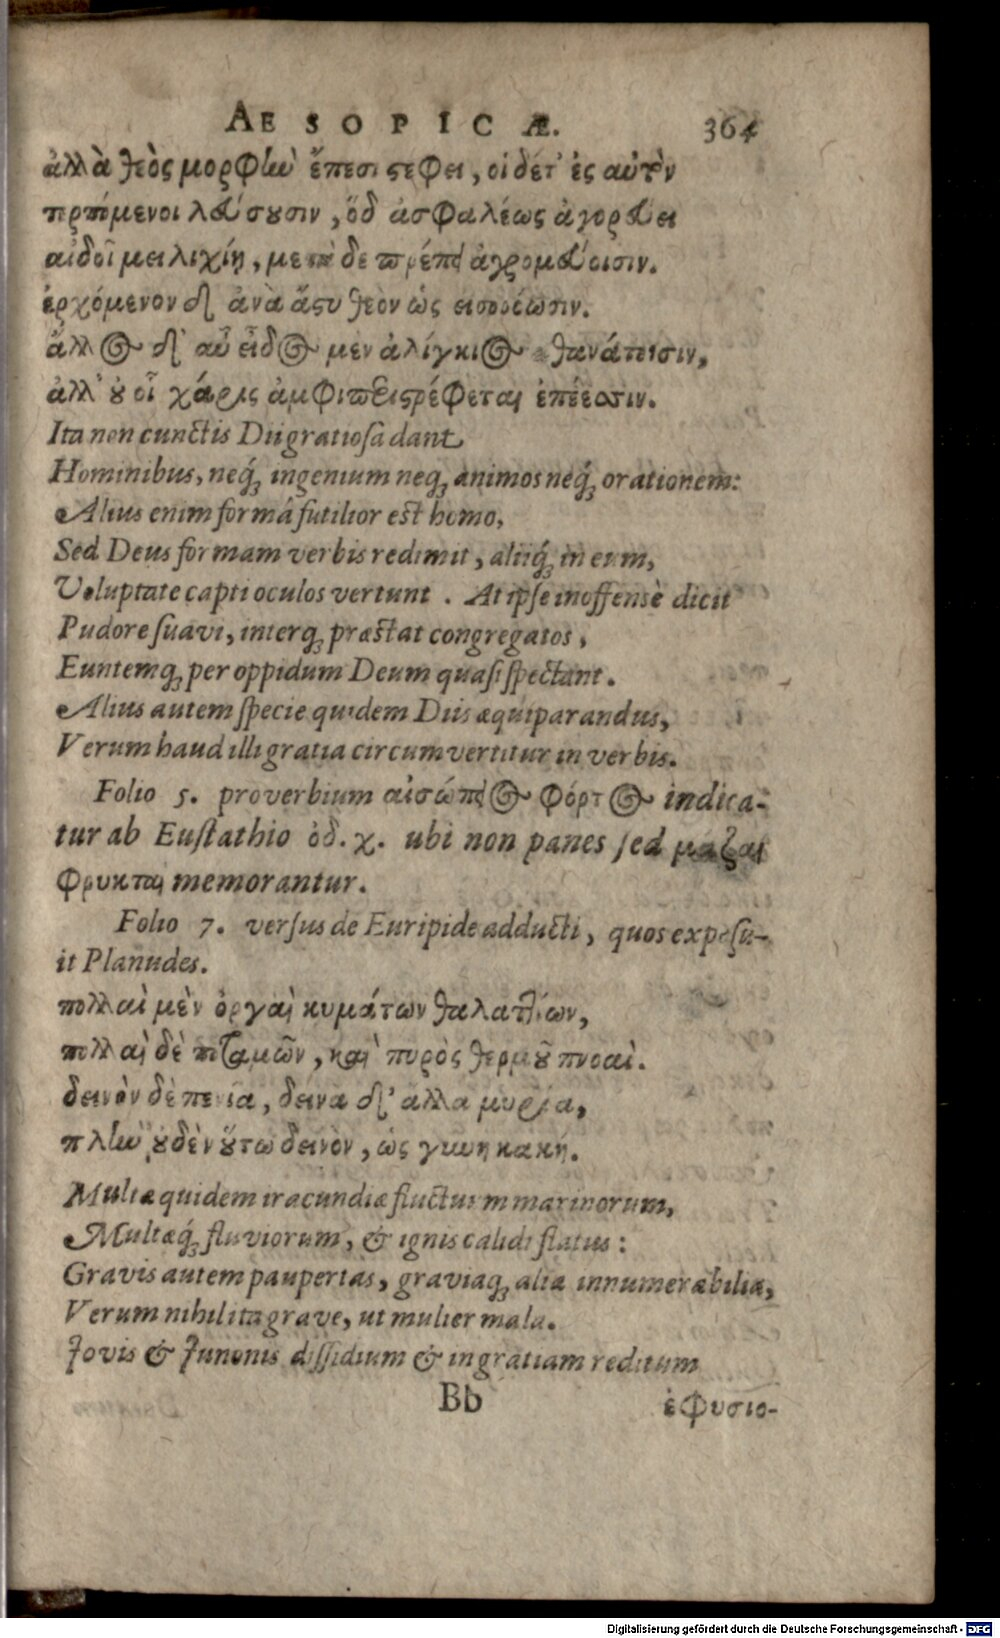 AESOPICÆ. 364
ἀλλὰ θεὸς μορφὴν ἔπεσι στέφει, οἱ δέτ' ἐς αὐτὸν
τερπόμενοι λεύσουσιν, ὅδ ἀσφαλέως ἀγορεύει
αἰδοῖ μειλιχίῃ, μετὰ δε πρέπει ἀγρομένοισιν.
ἐρχόμενον δ' ἀνὰ ἄστυ θεὸν ὡς εισορέωσιν.
ἄλλος δ' αὖ εἶδος μεν ἀλίγκιος ἀθανάτοισιν,
ἀλλ' ού οἷ χάρις ἀμφιπεριστρέφεται ἐπέεσσιν.
Ita non cunctis Dii gratiosa dant
Hominibus, neq; ingenium neq; animos neq; orationem:
Alius enim formâ futilior est homo,
Sed Deus formam verbis redimit, aliiq; in eum,
Voluptate capti oculos vertunt. At ipse inoffensè dicit
Pudore suavi, interq; præstat congregatos,
Euntemq; per oppidum Deum quasi spectant.
Alius autem specie quidem Diis æquiparandus,
Verum haud illi gratia circumvertitur in verbis.
Folio 5. proverbium αἰσώπειος φόρτος indica-
tur ab Eustathio ὀδ. χ. ubi non panes sed μάζαι
φρυκται memorantur.
Folio 7. versus de Euripide adducti, quos exposu-
it Planudes.
πολλαὶ μὲν ὀργαὶ κυμάτων θαλαττίων,
πολλαὶ δὲ ποταμῶν, καὶ πυρὸς θερμοῦ πνοαί.
δεινὸν δὲ πενία, δεινὰ δ' άλλα μυρία,
πλὴν οὐδὲν οὕτω δεινὸν, ὡς γυνη κακή.
Multæ quidem iracundiæ fluctuum marinorum,
Multæq; fluviorum, & ignis calidi flatus:
Gravis autem paupertas, graviaq; alia innumerabilia,
Verum nihil ita grave, ut mulier mala.
Jovis & Junonis dissidium & in gratiam reditum
Bb ἐφυσιο-
Digitalisierung gefördert durch die Deutsche Forschungsgemeinschaft - DFG